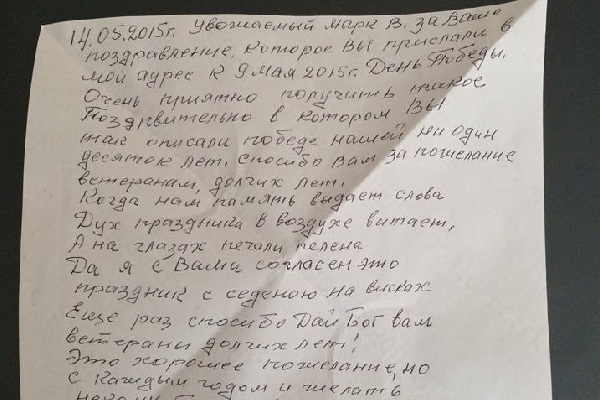 14.05.2015г. Уважаемый Марк В. за Ваше
поздравление, которое Вы прислали в
мой адрес к 9 мая 2015г. День Победы.
Очень приятно получить такое
Поздрвительно в котором Вы
так описали победе нашей ни один
десяток лет. спосибо Вам за пожелание
ветеранам, долгих лет.
Когда нам память выдает слова
Дух праздника в воздухе витает,
А на глазах печали пелена
Да я с Вами согласен это
праздник с седеною на висках
Еще раз спосибо Дай Бог вам
ветераны долгих лет!
Это хорошее пожелание, но
с каждым годом и желать